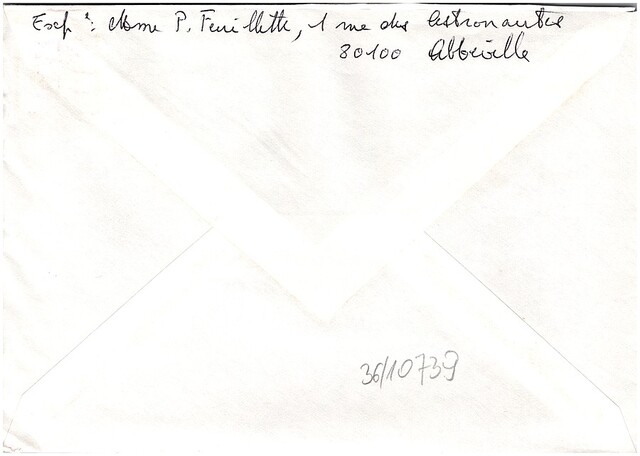 Exp r: Mme P. Feuillette, 1 rue des Astronautes
80100 Abbeville
36/10739